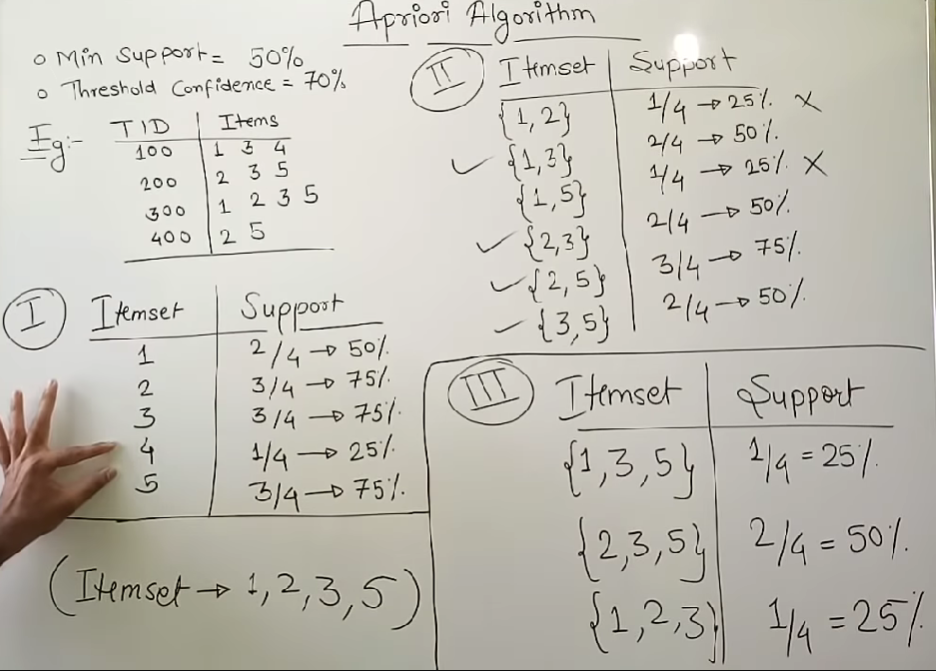 Apriori Algorithm
o Min Support = 50%
o Threshold Confidence = 70%
Eg:-
TID | Items
100 | 1 3 4
200 | 2 3 5
300 | 1 2 3 5
400 | 2 5
I Itemset | Support
1 | 2/4 → 50%
2 | 3/4 → 75%
3 | 3/4 → 75%
4 | 1/4 → 25%
5 | 3/4 → 75%
(Itemset → 1, 2, 3, 5)
II Itemset | Support
{1, 2} 1/4 → 25% X
✓ {1, 3} 2/4 → 50%
{1, 5} 1/4 → 25% X
✓ {2, 3} 2/4 → 50%
✓ {2, 5} 3/4 → 75%
✓ {3, 5} 2/4 → 50%
III Itemset | Support
{1, 3, 5} 1/4 = 25%
{2, 3, 5} 2/4 = 50%
{1, 2, 3} 1/4 = 25%